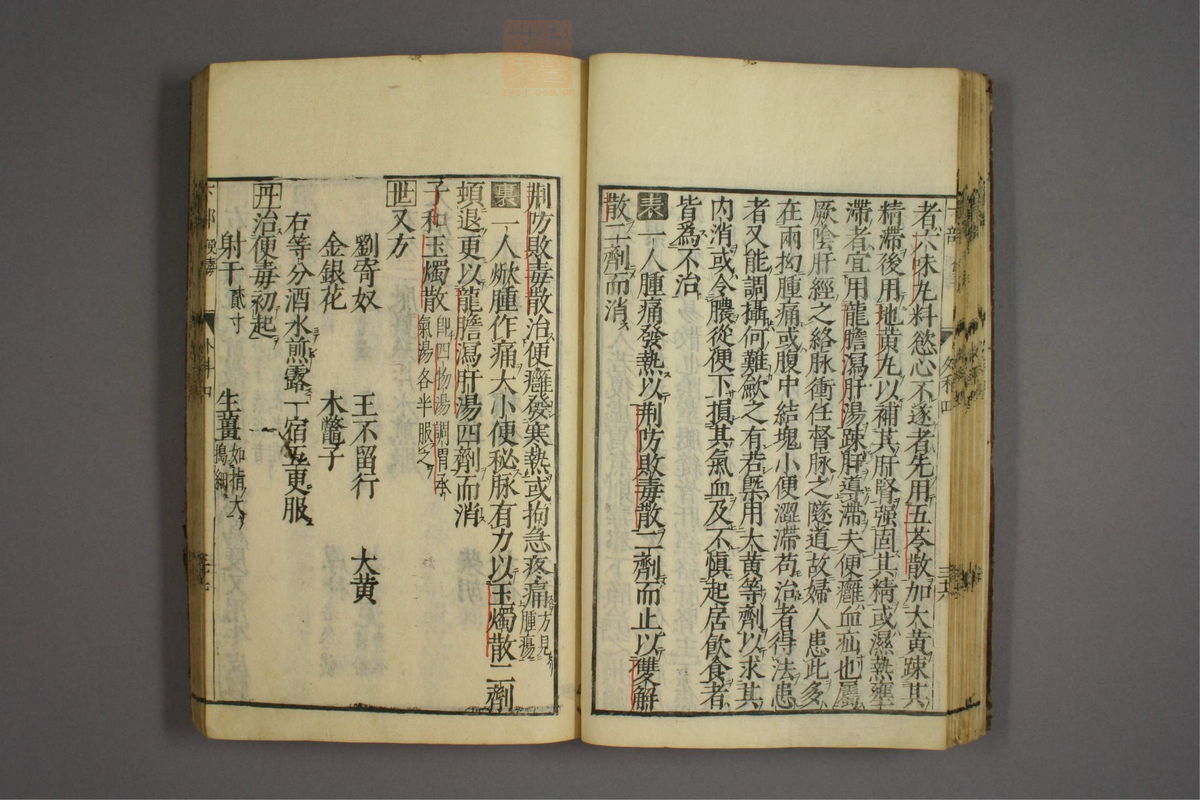 者六味丸料慾心不遂者先用五苓散加大黄踈其
精滞後用地黄丸以補其肝腎強固其精或濕熱壅
滞者宜用龍膽瀉肝湯踈肝導滞夫便癰血疝也屬
厥陰肝經之絡脉衝任督脉之隧道故婦人患此多
在兩拗腫痛或腹中結塊小便澀滞苟治者得法患
者又能調攝何難歛之有若槩用大黄等劑以求其
内消或令膿從便下損其氣血及不慎起居飲食者
皆為不治
表一人腫痛發熱以荆防敗毒散二劑而止以雙解
散二劑而消
荆防敗毒散治便癰發寒熱或拘急疼痛方見腫瘍
裏一人焮腫作痛大小便秘脉有力以玉燭散二劑
頓退更以龍膽瀉肝湯四劑而消
子和玉燭散即四物湯調胃承氣湯各半服之
世又方
劉寄奴 王不留行 大黄
金銀花 木鼈子
右等分酒水煎露一宿五更服
丹治便毒初起
射干貳寸 生薑如指大搗細
外科四